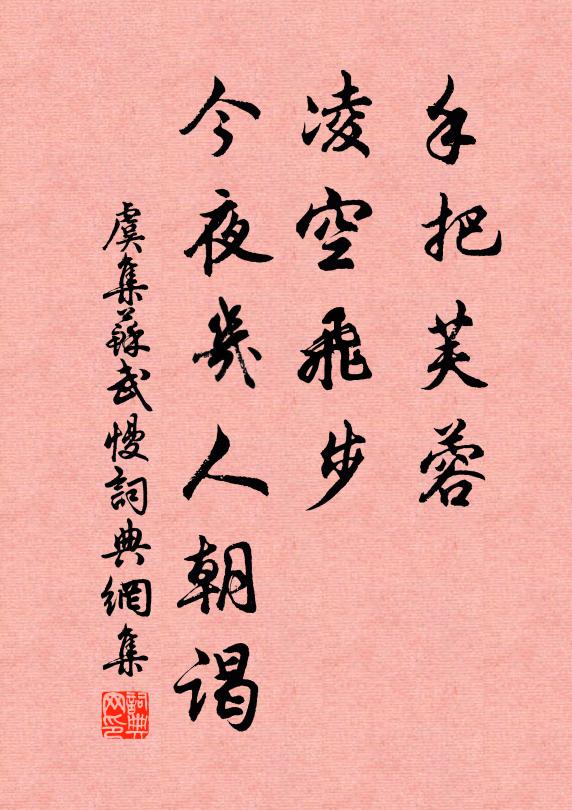 手把芙蓉
凌空飛步
今夜幾人朝谒
虞集蘇武慢詞典網集
詞典网印